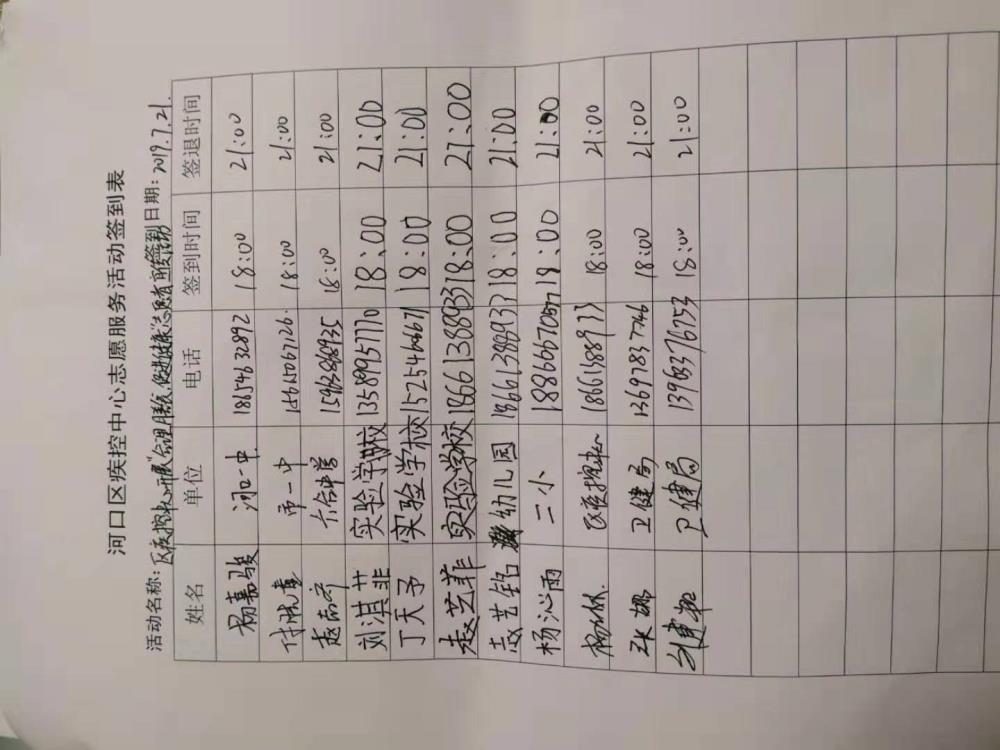 河口区疾控中心志愿服务活动签到表
活动名称：区疾控中心开展"合理膳食，促进健康"志愿者 日期：2019.7.21.
姓名 单位 电话 签到时间 签退时间
杨嘉骏 河口一中 18654632892 18:00 21:00
市一中 15615067126 18:00 21:00
六合中学 15963888935 18:00 21:00
刘淇菲 实验学校 13589957770 18:00 21:00
丁天予 实验学校 15254646671 18:00 21:00
赵艺菲 实验学校 18661388937 18:00 21:00
艺铭 幼儿园 18661388937 18:00 21:00
杨沁雨 二小 18:00 21:00
杨 区疾控中心 18661388973 18:00 21:00
张娜 卫健局 13697837746 18:00 21:00
卫健局 13963376753 18:00 21:00